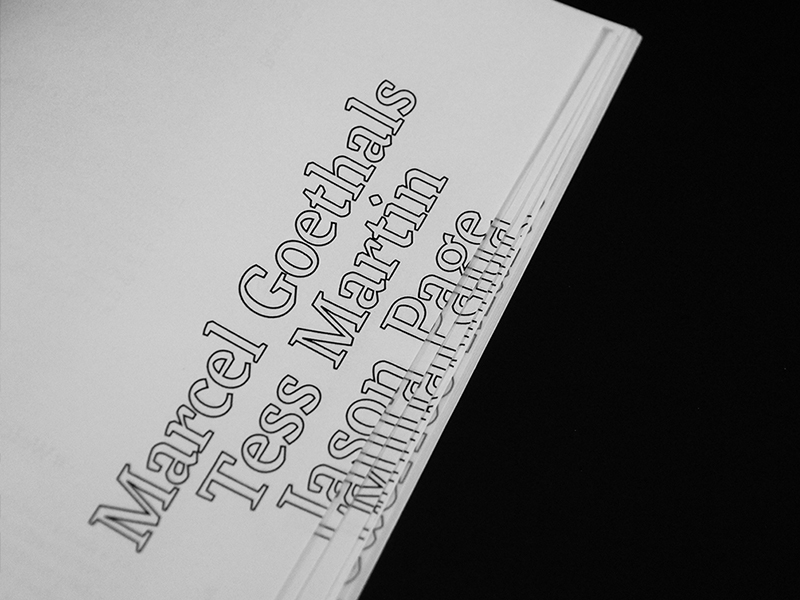 Marcel Goethals
Tess Martin
Jason Page